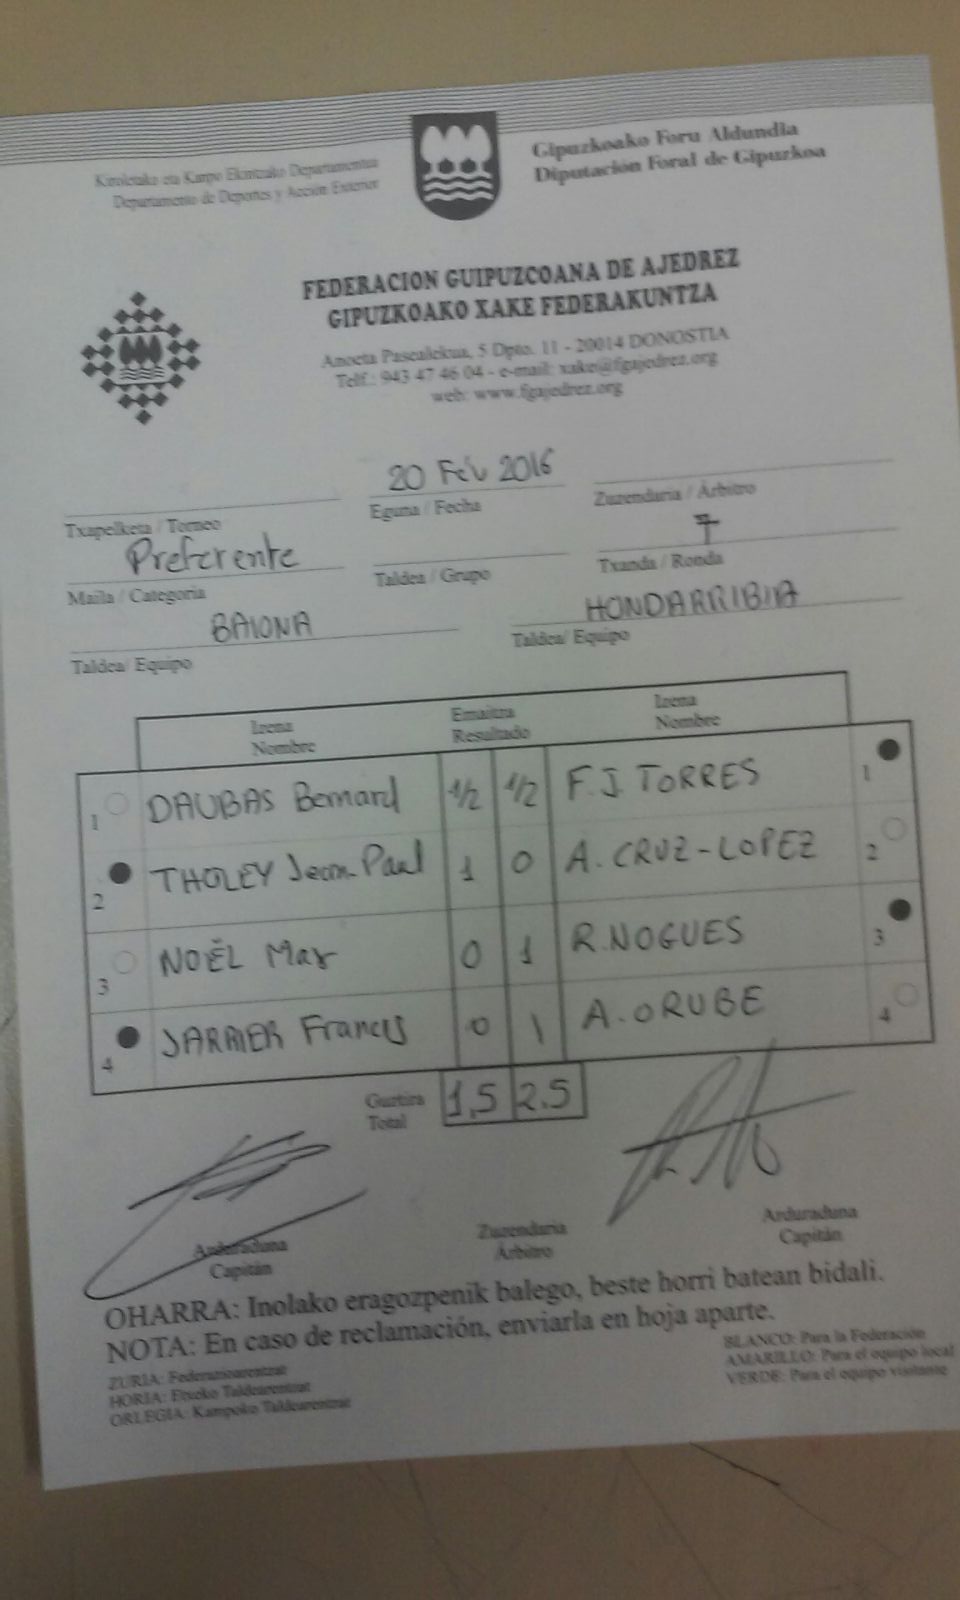 Kiroletako eta Kanpo Ekintzako Departamentua
Departamento de Deportes y Acción Exterior
Gipuzkoako Foru Aldundia
Diputación Foral de Gipuzkoa
FEDERACION GUIPUZCOANA DE AJEDREZ
GIPUZKOAKO XAKE FEDERAKUNTZA
Anoeta Pasealekua, 5 Dpto. 11 - 20014 DONOSTIA
Telf.: 943 47 46 04 - e-mail: xake@fgajedrez.org
web: www.fgajedrez.org
20 Fév 2016
Txapelketa / Torneo Eguna / Fecha Zuzendaria / Árbitro
Preferente 7
Maila / Categoria Taldea / Grupo Txanda / Ronda
BAIONA HONDARRIBIA
Taldea/ Equipo Taldea/ Equipo
Izena Emaitza Izena
Nombre Resultado Nombre
1 DAUBAS Bernard 1/2 1/2 F.J. TORRES 1
2 THOLEY Jean-Paul 1 0 A. CRUZ-LOPEZ 2
3 NOËL Max 0 1 R. NOGUES 3
4 JARRIER Francis 0 1 A. ORUBE 4
Guztira
Total 1,5 2.5
Arduraduna Zuzendaria Arduraduna
Capitán Árbitro Capitán
OHARRA: Inolako eragozpenik balego, beste horri batean bidali.
NOTA: En caso de reclamación, enviarla en hoja aparte.
ZURIA: Federazioarentzat
HORIA: Etxeko Taldearentzat
ORLEGIA: Kanpoko Taldearentzat
BLANCO: Para la Federación
AMARILLO: Para el equipo local
VERDE: Para el equipo visitante